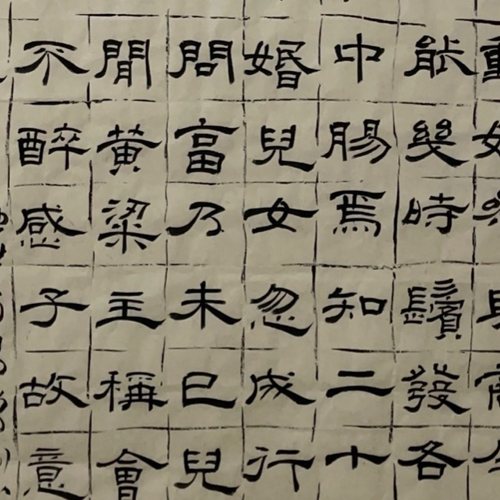 能幾時鬢發各
中腸焉知二十
婚兒女忽成行
問畣乃未已兒
閒黃粱主稱會
不醉感子故意